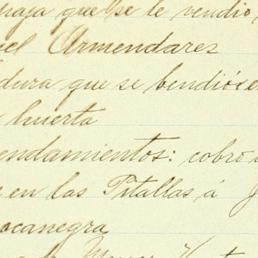 que se le vendió
Armendares
que se bendió
huerta
endamientos: cobró
en las Pitallas á
ocanegra